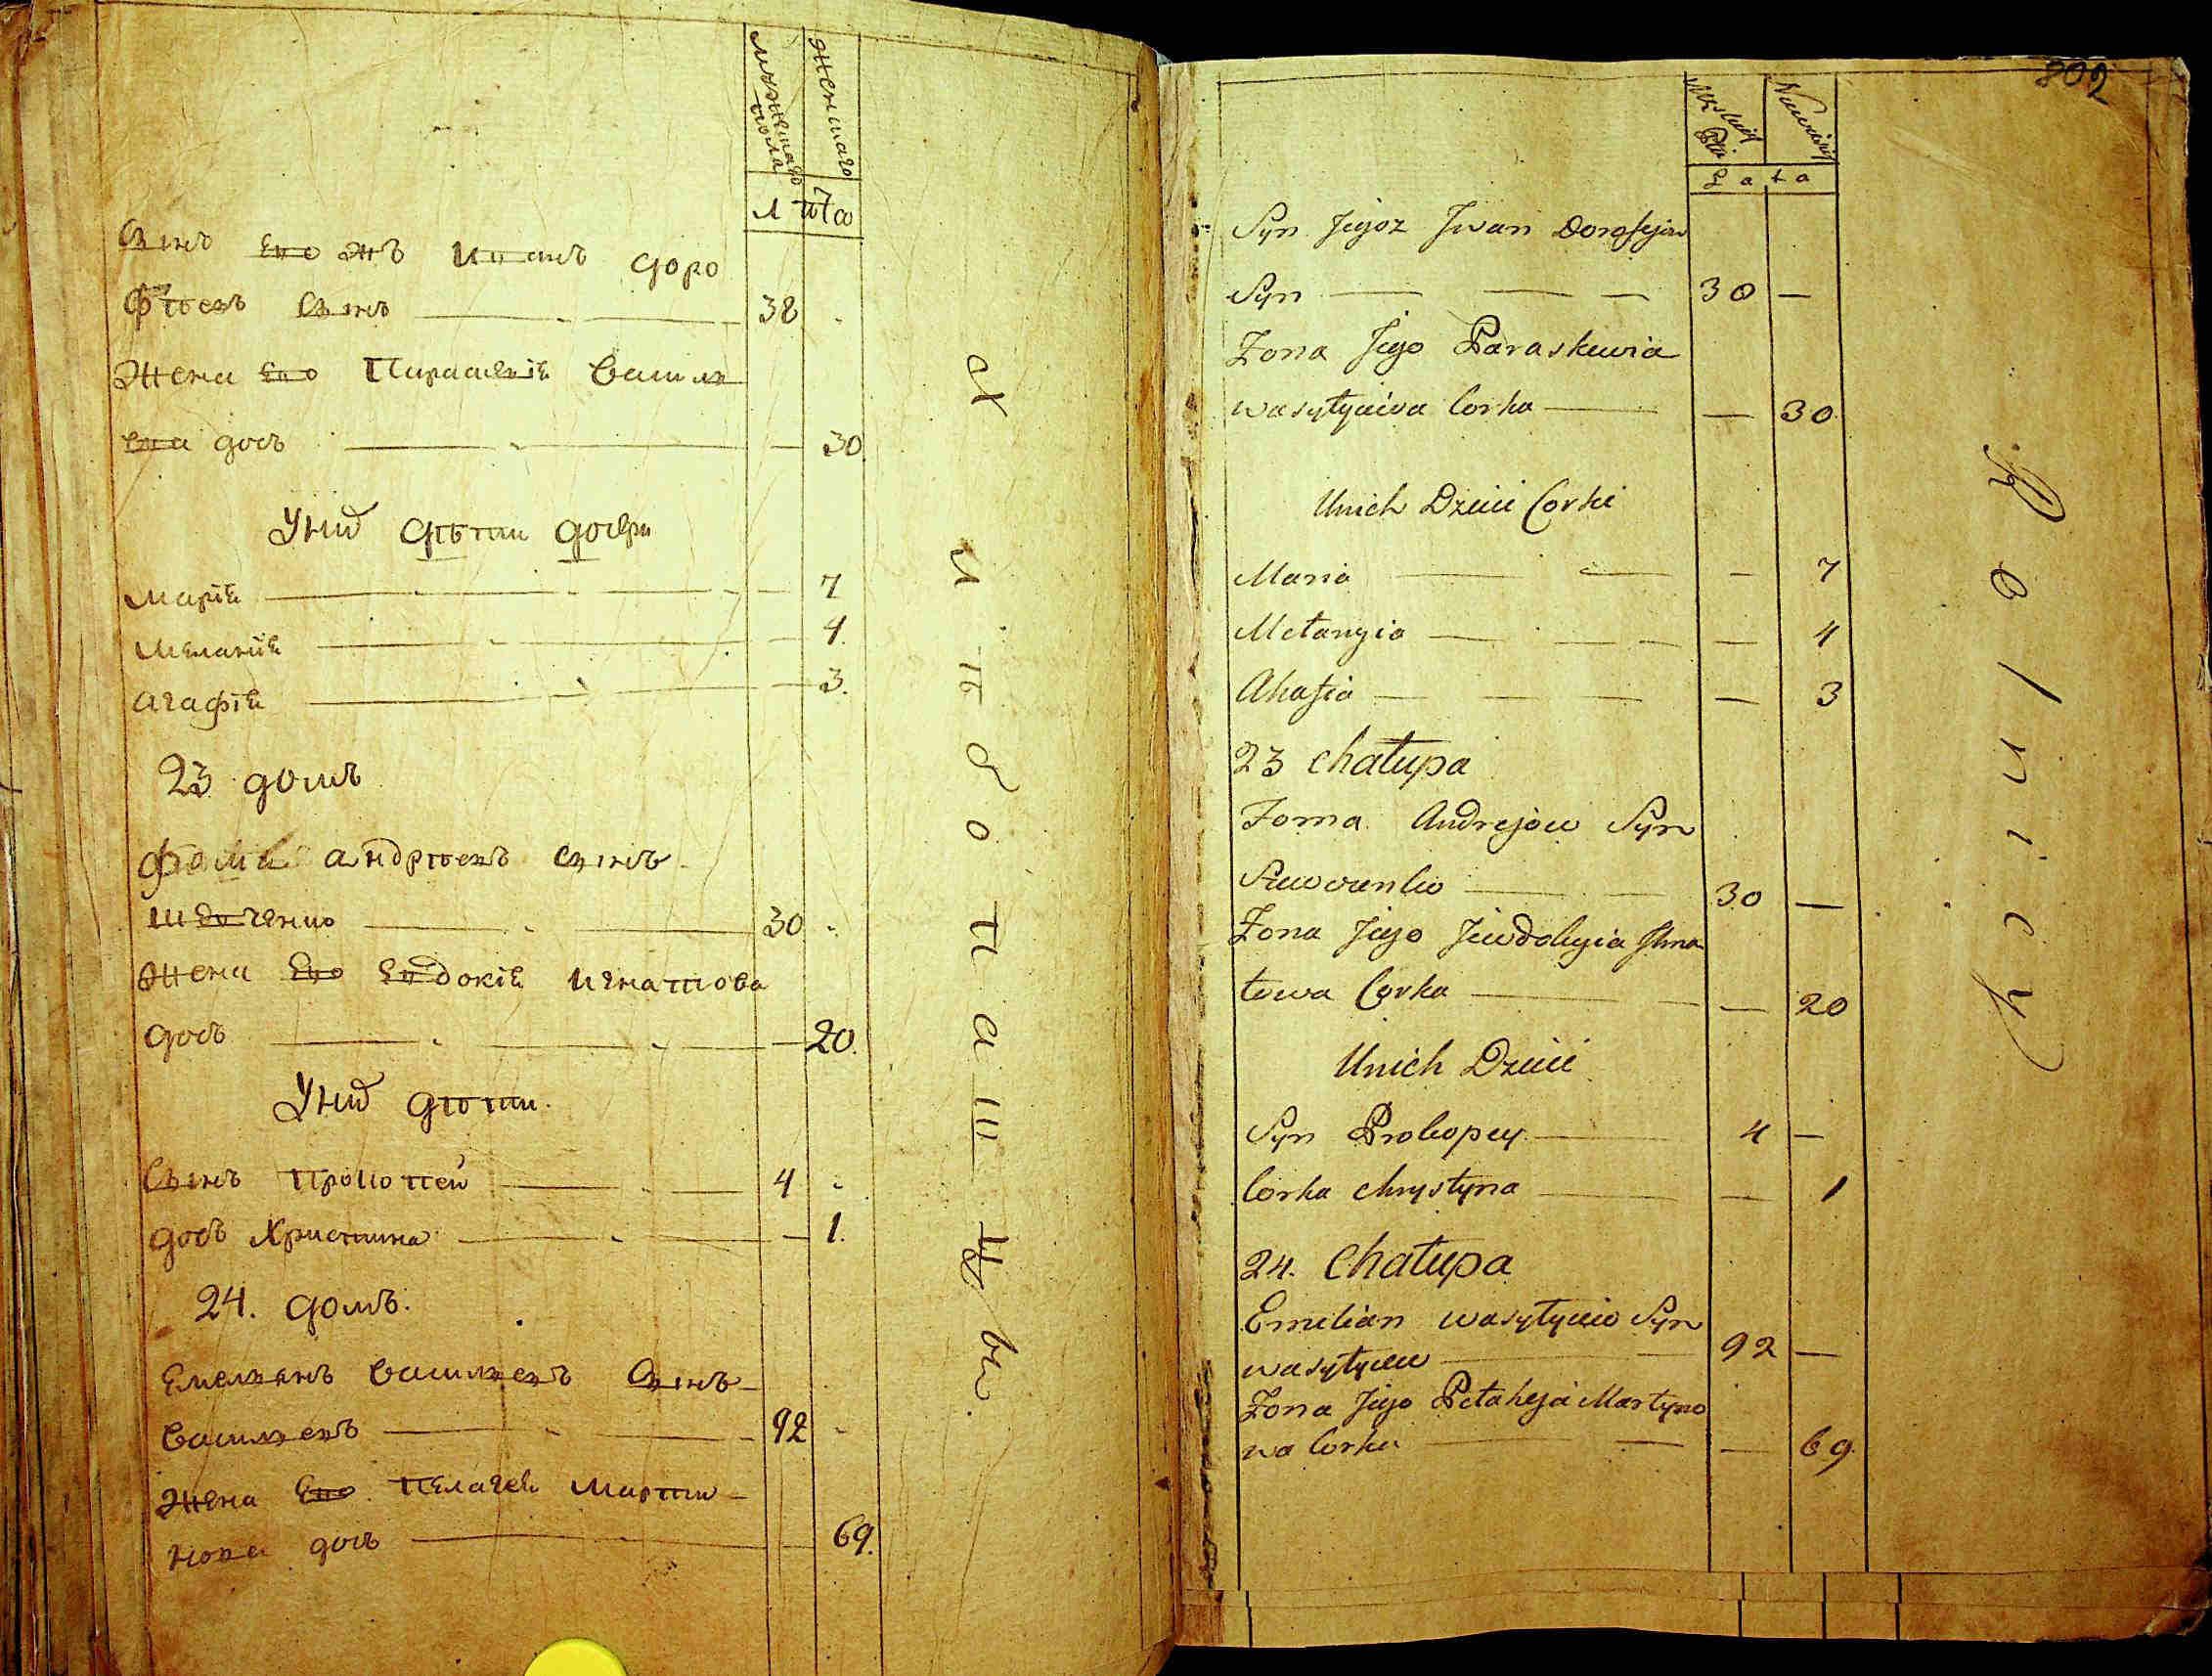 мужеска пола
женшаго
лѣта
Сынъ его жъ иванъ доро
фѣевъ сынъ 38
Жена его Параскевія Василе
ева дочь 30
У них дѣти дочери
Марія 7
Меланія 4.
Агафія 3.
23 домъ
Фома андрѣевъ сынъ
Шевченко 30
Жена его евдокія игнатова
дочь 20.
У них дѣти.
Сынъ прокопей 4
дочь Христина 1.
24. домъ.
Емелиянъ Василиевъ Сынъ
Василиевъ 92
Жена его пелагея марти
нова дочь 69.
802
Męskiej Płci
Lata
Syn Jegoż Iwan Dorofejow
Syn 30
Żona Jego Paraskewia
wasylyiewa Corka 30
Unich Dzieci Corki
Maria 7
Mełanyia 4
Ahafia 3
23 Chałupa
Foma Andrejow Syn
Szewczenko 30
Żona Jego Jewdokyia Ihna
towa Corka 20
Unich Dzieci
Syn Prokopey 4
Corka Chrystyna 1
24. Chałupa
Emilian wasyłyiew Syn
wasyłyiew 92
Żona Jego Pełaheja Martyno
wa Corka 69